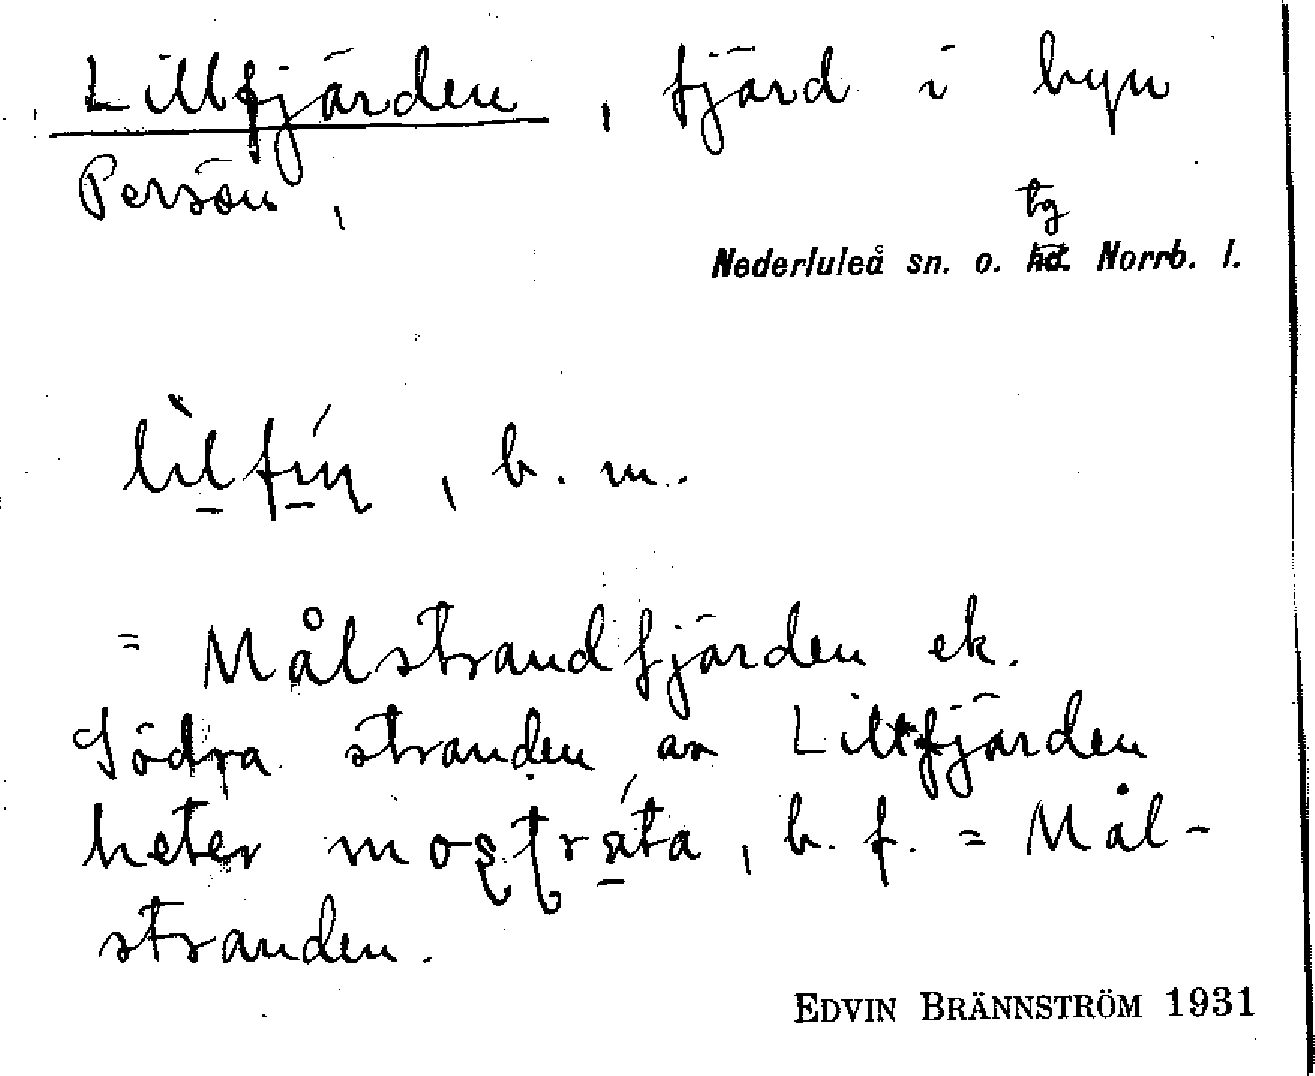 Lillfjärden, fjärd i byn
Persön,
tg
Nederluleå sn. o. hd. Norrb. l.
lìlfíṇ, b. m.
= Målstrandfjärden ek.
Södra stranden av Lillfjärden
heter
, b. f. = Mål-
stranden.
EDVIN BRÄNNSTRÖM 1931